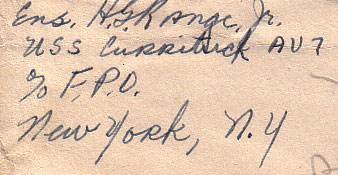 Ens. H.G. Range, Jr.
USS Currituck AV7
c/o F.P.O.
New York, N.Y